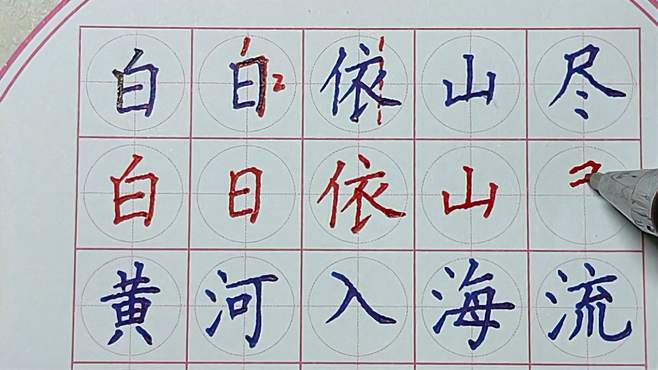 白日2依山尽
白日依山
黄河入海流